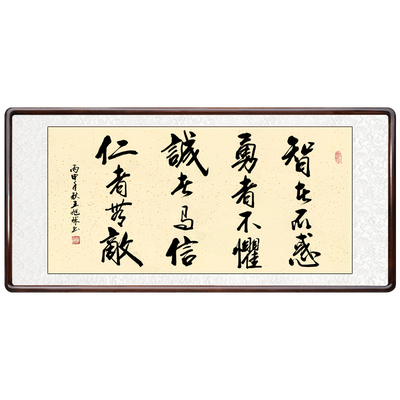 智者不惑
勇者不懼
誠者為信
仁者無敵
丙申年秋王旭